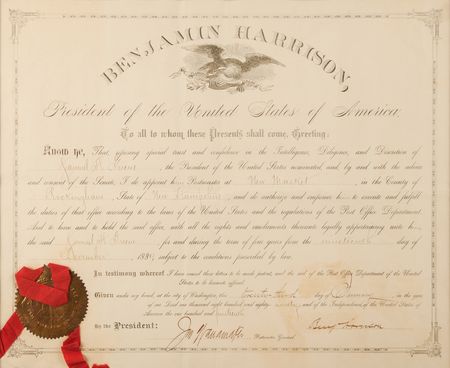 BENJAMIN HARRISON,
President of the United States of America,
To all to whom these Presents shall come, Greeting:
Know Ye, That, reposing special trust and confidence in the Intelligence, Diligence, and Discretion of
, the President of the United States nominated, and, by and with the advice
and consent of the Senate, I do appoint him Postmaster at New Market, in the County of
Rockingham, State of New Hampshire, and do authorize and empower him to execute and fulfill the
duties of that office according to the laws of the United States and the regulations of the Post Office Department.
And to have and to hold the said office, with all the rights and emoluments thereunto legally appertaining unto
the said for and during the term of four years from the nineteenth day of
December, 1889, subject to the conditions prescribed by law.
In testimony whereof I have caused these letters to be made patent, and the seal of the Post Office Department of the United
States to be hereunto affixed.
Given under my hand, at the city of Washington, this day of January, in the year
of our Lord one thousand eight hundred and eighty- , and of the Independence of the United States of
America the one hundred and fourteenth.
By the President:
Jno Wanamaker
Postmaster General.
Benj Harrison